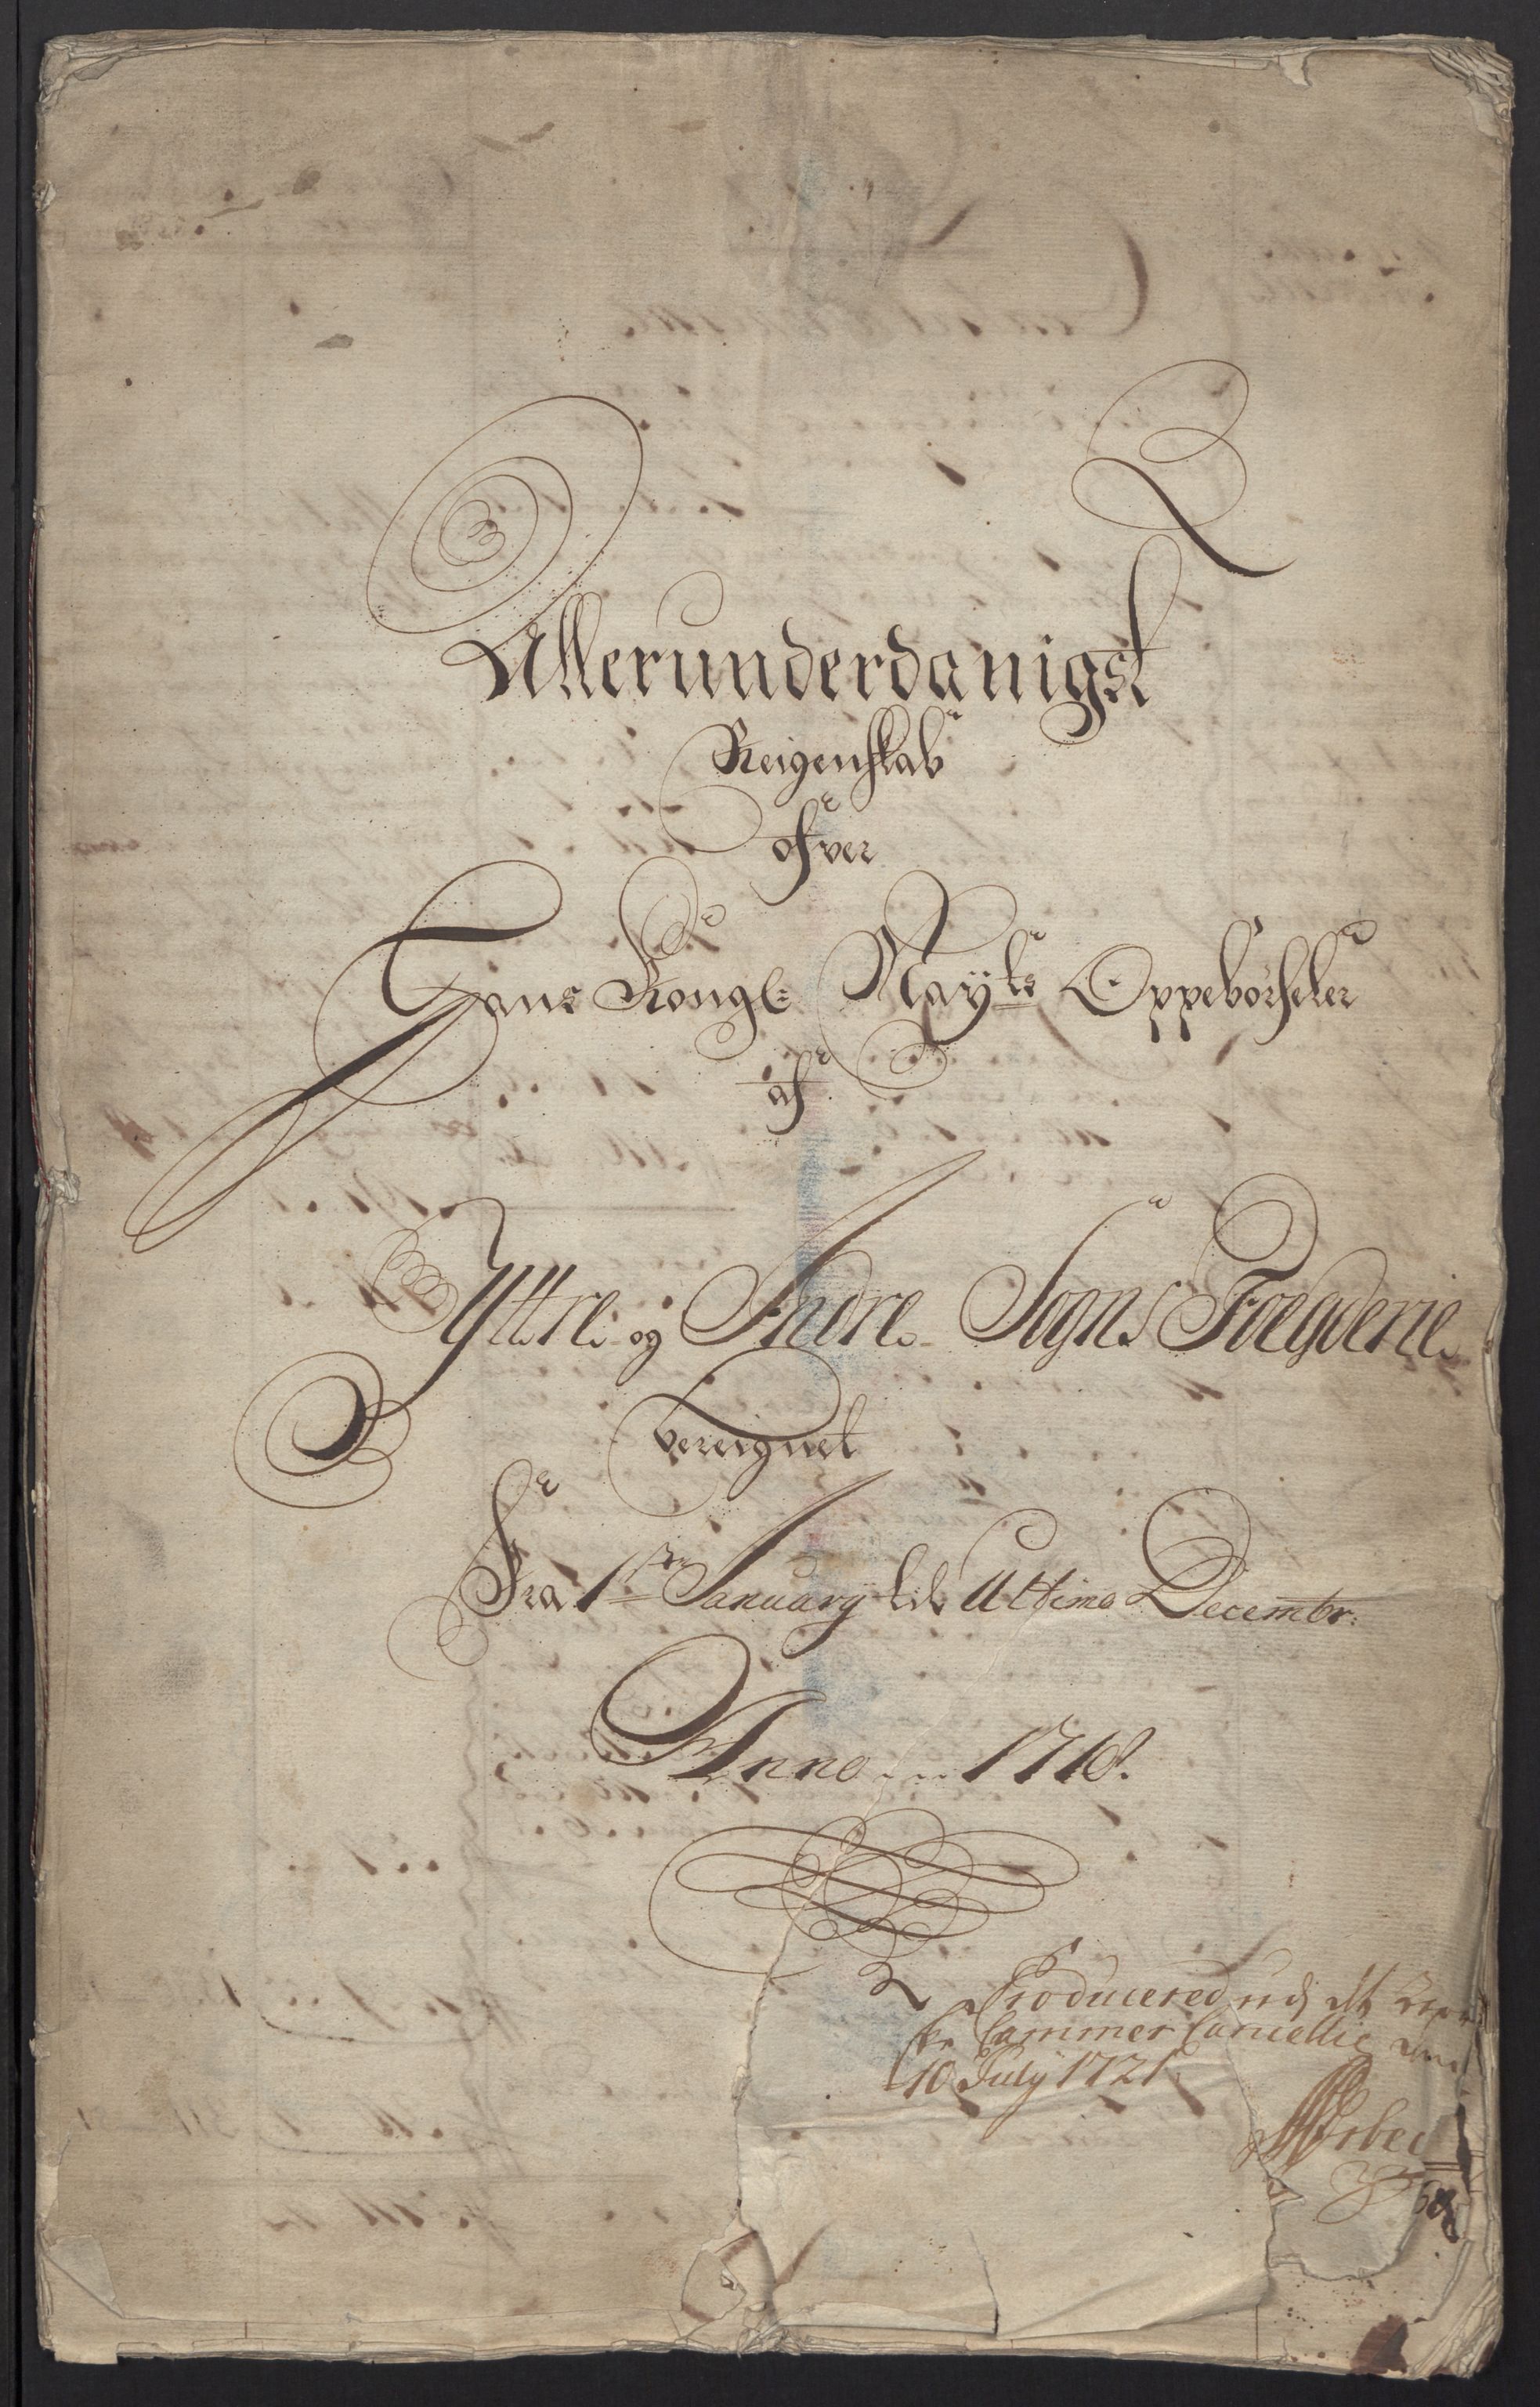 Allerunderdanigst
Reigenskab
ofver
Hans Kongl: Mayts Oppebørseler
af
Yttre og Indre Sogns Foegderie
bereignet
Fra 1ste January til Ultimo Decembr:
Anno 1718.
Producered udj det
Cammer Cancellie
10 July 1721